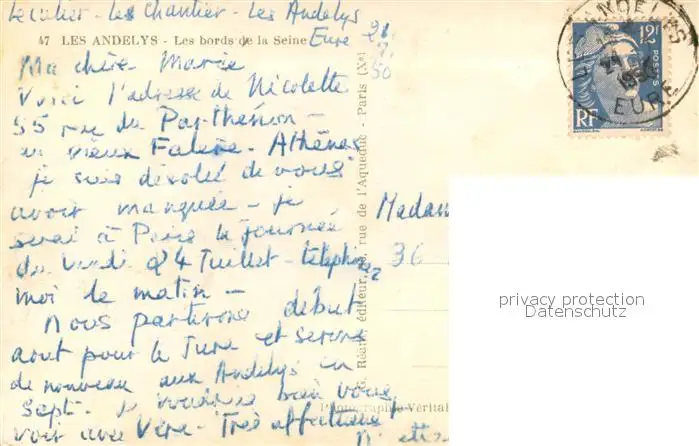 Les Chantier - Les Andelys
Eure 21.
7.
50
47 LES ANDELYS - Les bords de la Seine
Ma chère Marie
Voici l'adresse de Nicolette
55 rue du Parthénon -
au vieux Falère - Athènes
je suis désolée de vous
avoir manquée - je
serai à Paris la journée
du Lundi 24 Juillet - téléphonez
moi le matin -
Nous partirons début
aout pour le Jura et serons
de nouveau aux Andelys en
Sept. je voudrais bien vous
voir avec Véra - Très affectueus
Madam
36
G. Réant, éditeur, rue de l'Aqueduc - Paris (Xe)
Photographie Vérital
LES ANDELYS
EURE
12F
POSTES
RF
privacy protection
Datenschutz